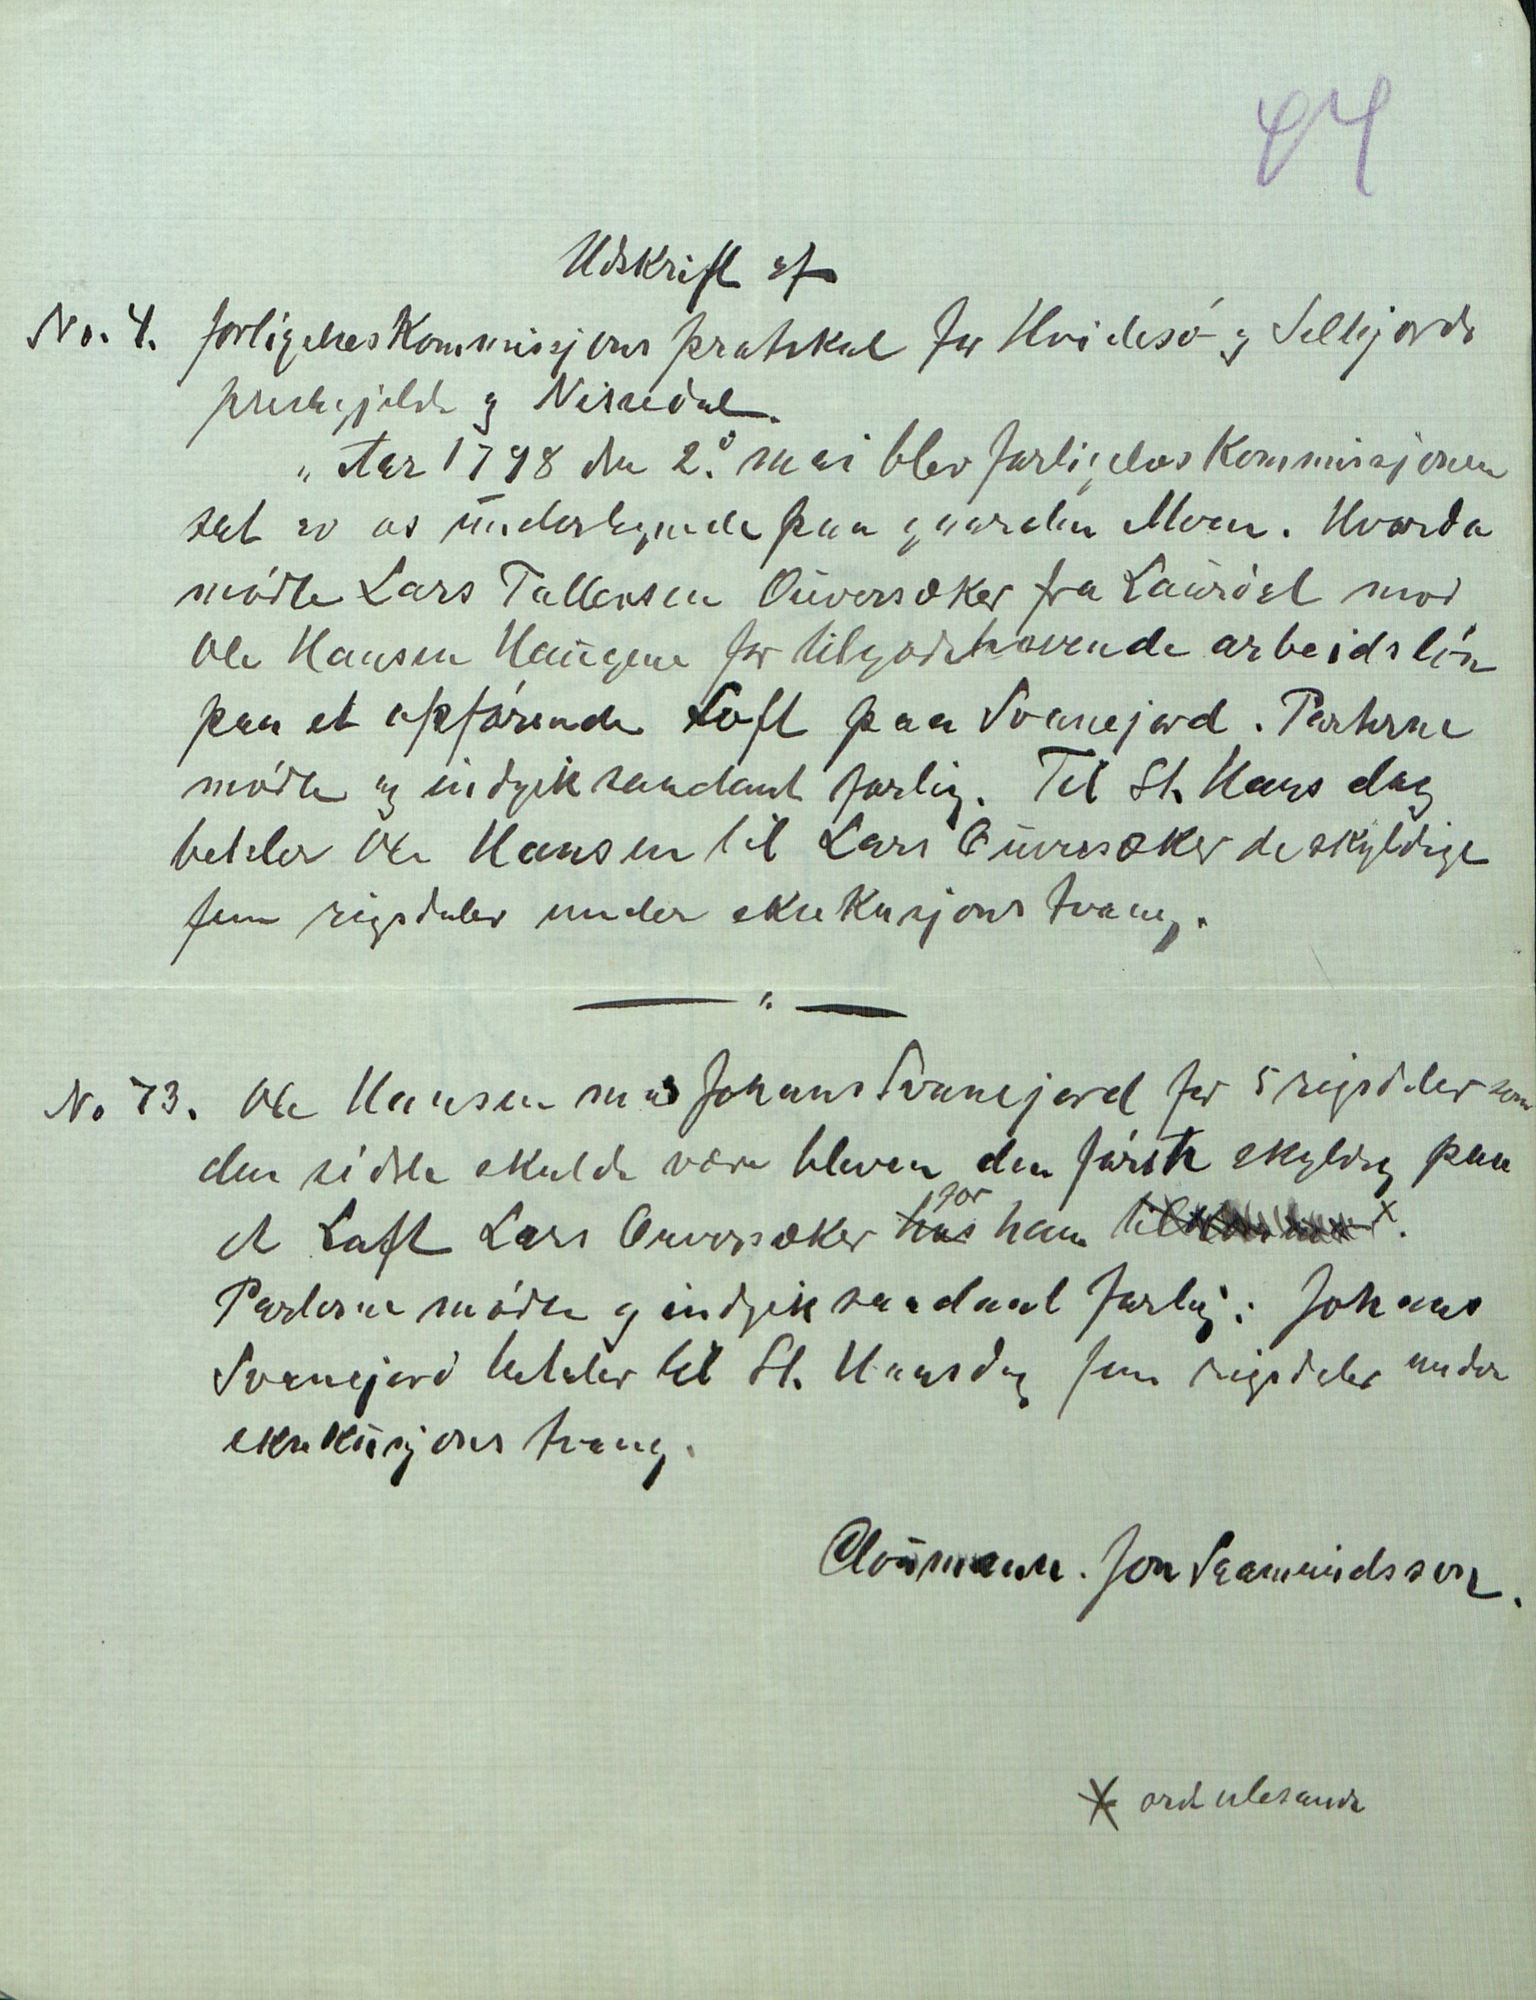 44
Udskrift af
No. 4. forligelseskommissjons protokol for Hvidesö og Sellejords
prestegjelde og Nissedal.
„Aar 1798 den 2.º mai blev forligelseskommissjonen
sat av os underteignede paa gaarden Moen. Hvorda
mödte Lars Tallevsen Ouversæker fra Laurdal mod
Ole Hansen Haugene for tilgodehavende arbeidslön
paa et opförende Loft paa Svanejord. Parterne
mödte og indgik saadant forlig. Til St. Hans dag
betaler Ole Hansen til Lars Ouversæker de skyldige
fem rigsdaler under ekse­kusjons tvang.
No 73. Ole Hansen mod Johans Svanejord for 5 rigsdaler som
den sidste skulde være bleven den förste skyldig paa
et Loft Lars Ouversæker for ham.
Parterne mödte og indgik saadant forlig: Johans
Svanejord betaler til St. Hansdag fem rigsdaler under
eksekusjons tvang.
Cloumann. Jon Saamundsson.
X ord ulesande